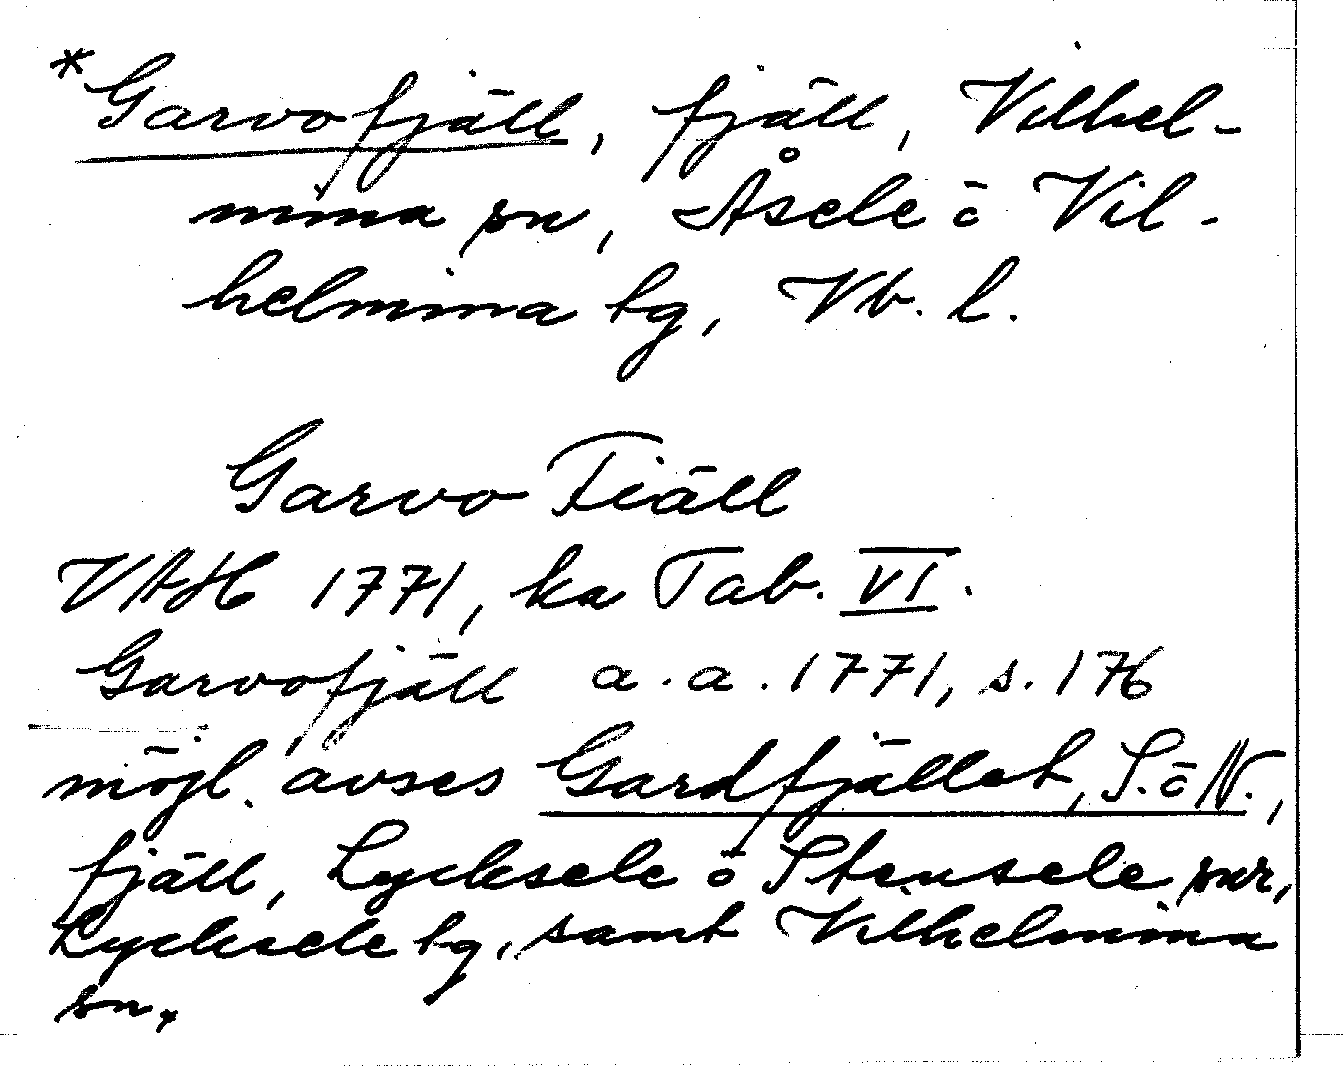 *Garvofjäll, fjäll, Vilhel-
mina sn, Åsele ö Vil-
helmina tg, Vb. l.
Garvo Fiäll
VAH 1771, ka Tab. VI.
Garvofjäll a. a. 1771, s. 176
möjl. avses Gardfjället, S. ö N.,
fjäll, Lycksele ö Stensele snr,
Lycksele tg, samt Vilhelmina
sn.